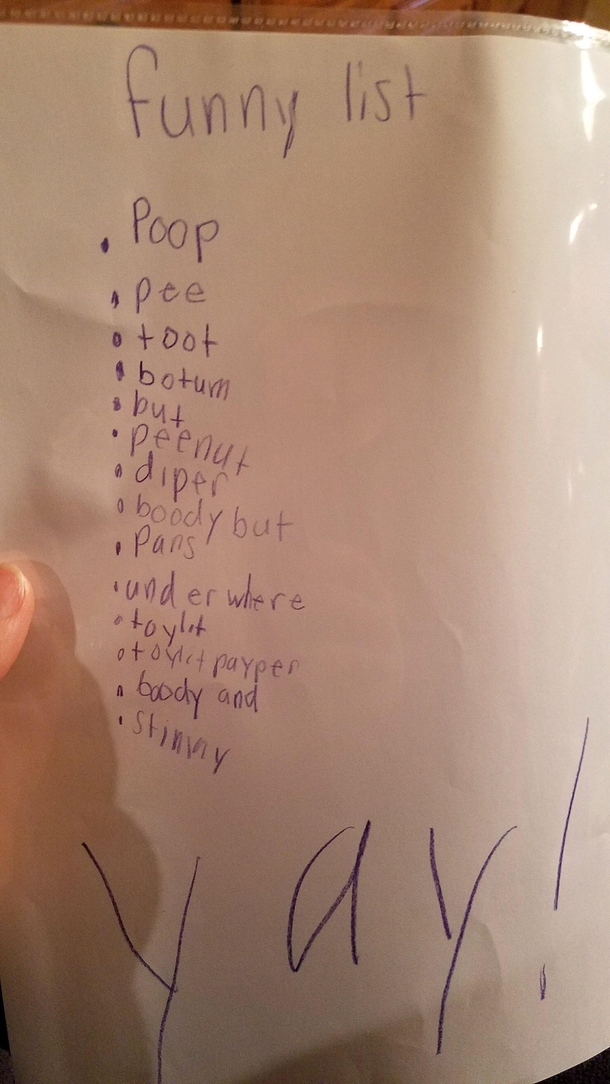 funny list
• Poop
• pee
• toot
• botum
• but
• peenut
• diper
• boody but
• Pans
• underwhere
• toylit
• toylit payper
• boody and
• stinny
yay!